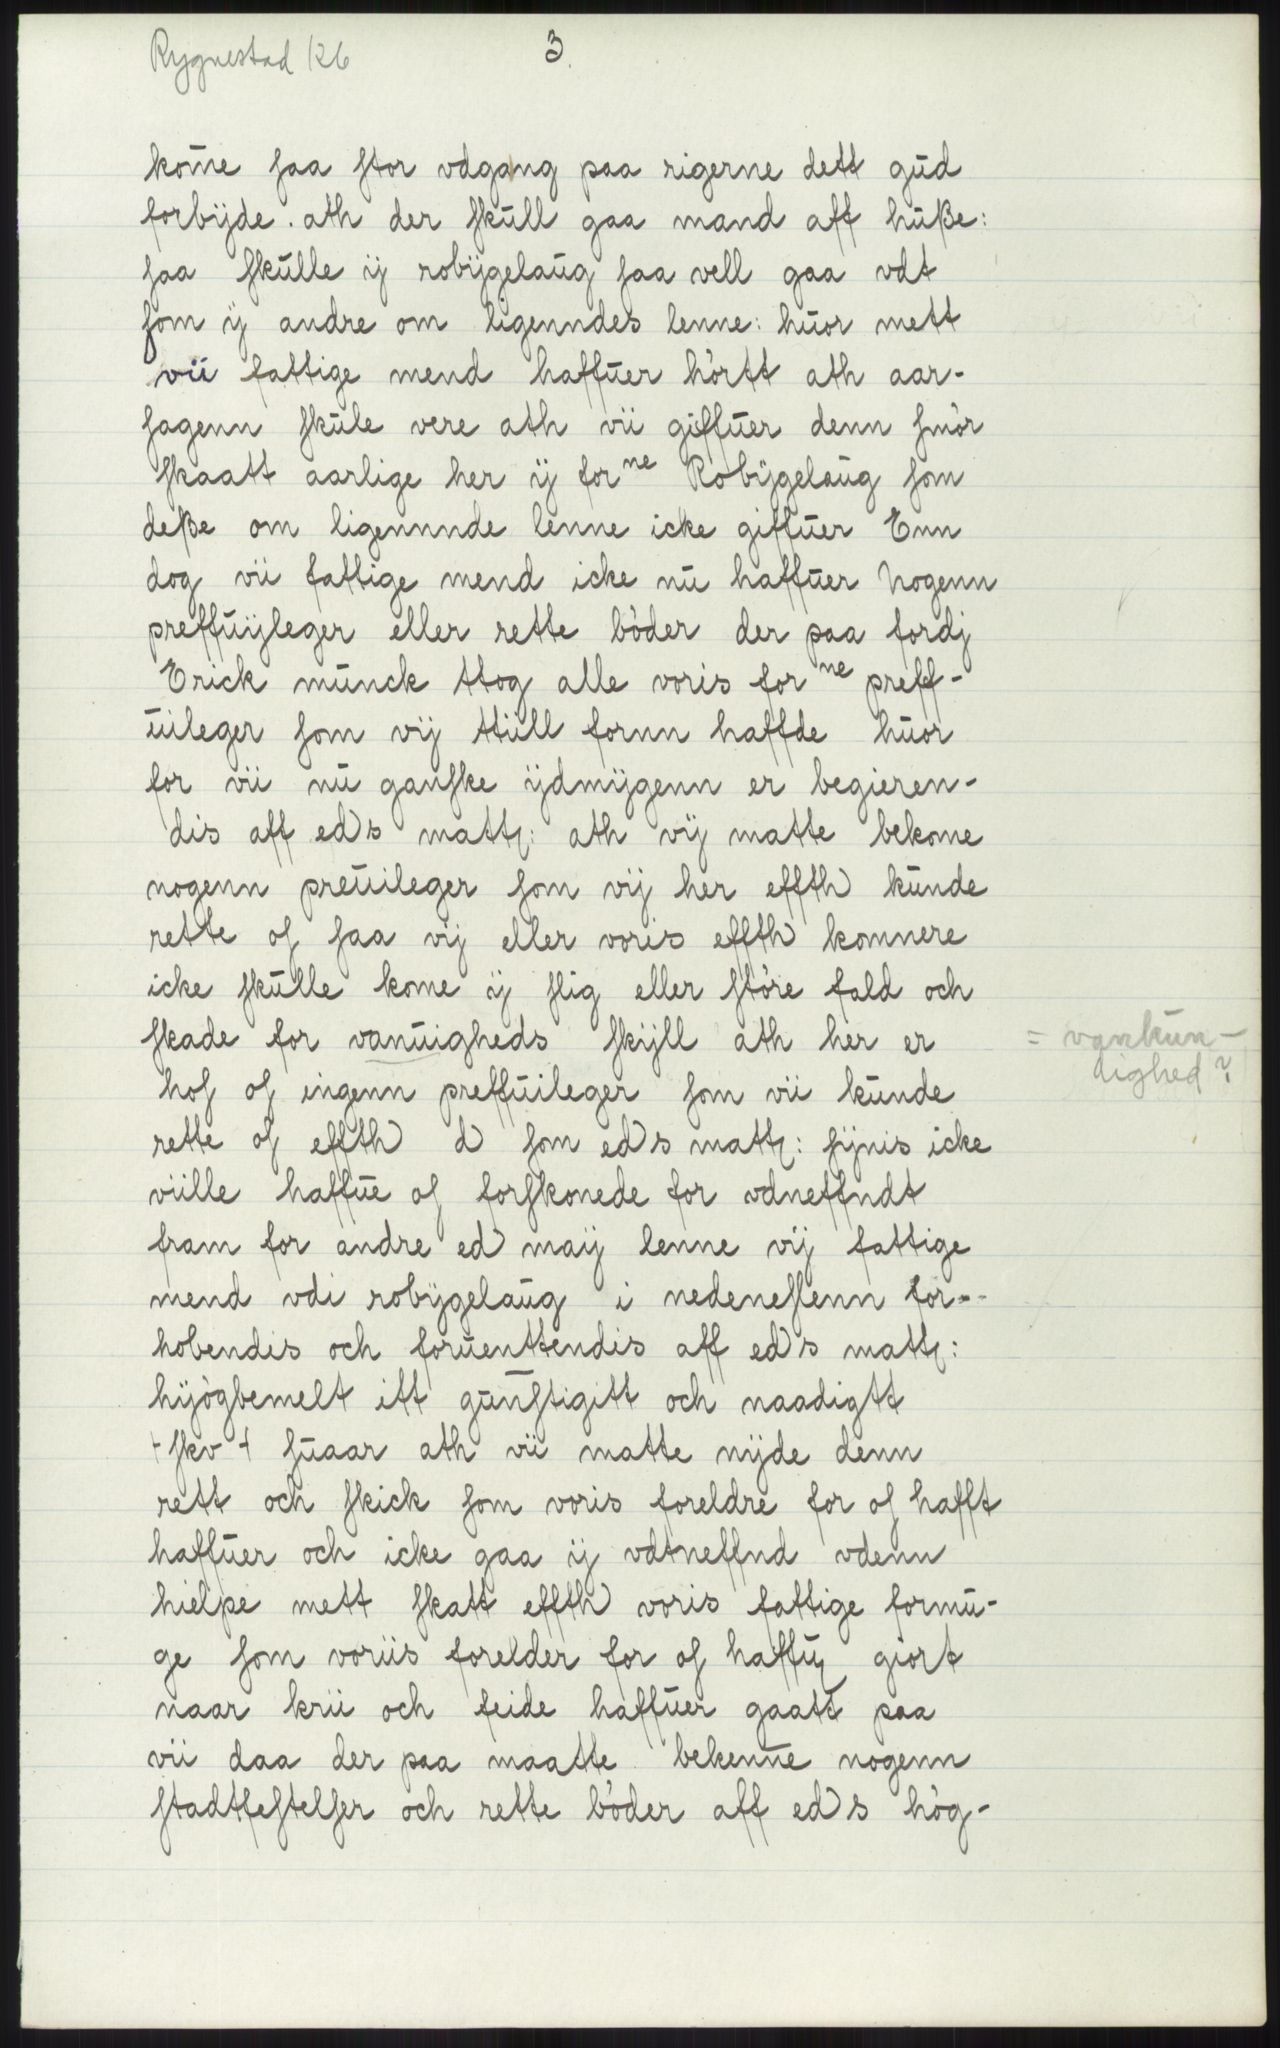 Rygnestad 126
3.
kom̅e saa stor vdgang paa rigerne dett gud
forbÿde. ath der skull gaa mand aff hŭße:
saa skŭlle ÿ robÿgelaŭg saa vell gaa vdt
som ÿ andre om ligenndes lenne: hŭor mett
vii fattige mend haffŭer hørtt ath aar-
sagenn skŭle vere ath vii giffŭer denn smør
skaatt aarlige her ÿ forⁿᵉ Robÿgelaŭg som
deße om ligennnde lenne icke giffŭer Enn
dog vii fattige mend icke nŭ haffŭer Nogenn
preffŭÿleger eller rette bøder der paa fordj
Erick mŭnck ttog alle voris forⁿᵉ preff-
ŭileger som vij ttiill fornn haffde hŭor
for vii nŭ ganske ÿdmÿgenn er begieren-
dis aff eds matt: ath vÿ matte bekome
nogenn preŭileger som vij her effth kŭnde
rette os saa vij eller voris effth komnere
icke skŭlle kome ÿ slig eller støre fald och
skade for vanŭigheds skÿll ath her er
= vankun-
dighed?
hos os ingenn preffŭileger som vii kŭnde
rette os effth d som eds matt: sÿnis icke
viille haffŭe os forskonede for vdneffndt
fram for andre ed maÿ lenne vÿ fattige
mend vdi robÿgelaŭg i nedenessenn for--
hobendis och forŭenttendis aff eds matt:
hÿøgbemelt itt gŭnstigitt och naadigtt
+ skv + sŭaar ath vii matte nÿde denn
rett och skick som voris foreldre for os hafft
haffŭer och icke gaa ÿ vdtneffnd vdenn
hielpe mett skatt effth voris fattige formŭ-
ge som voriis forelder for os haffŭ giort
naar krii och feide haffŭer gaatt paa
vii daa der paa maatte bekenn̅e nogenn
stadtfestelser och rette bøder aff eds høg-